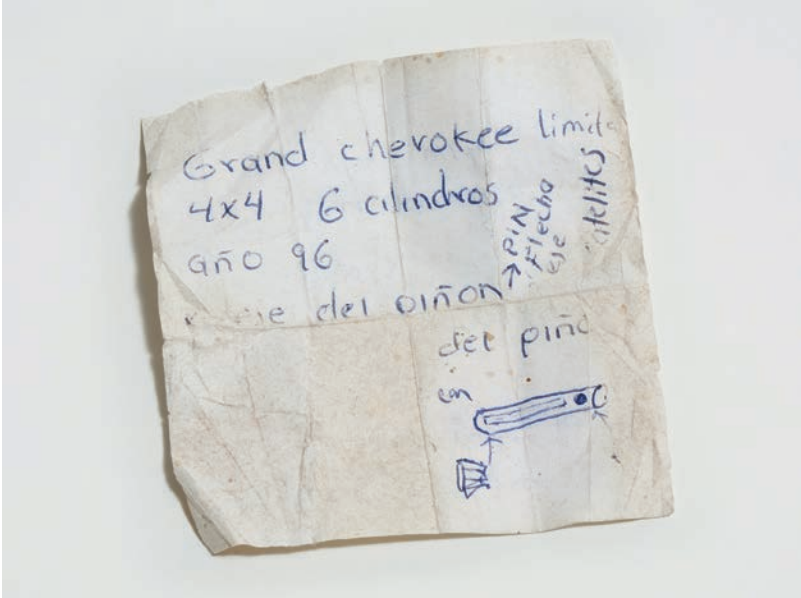 Grand cherokee limite
4x4 6 cilindros
año 96
eje del piñon
→ PiN
Flecha
eje
satelites
del piño
con